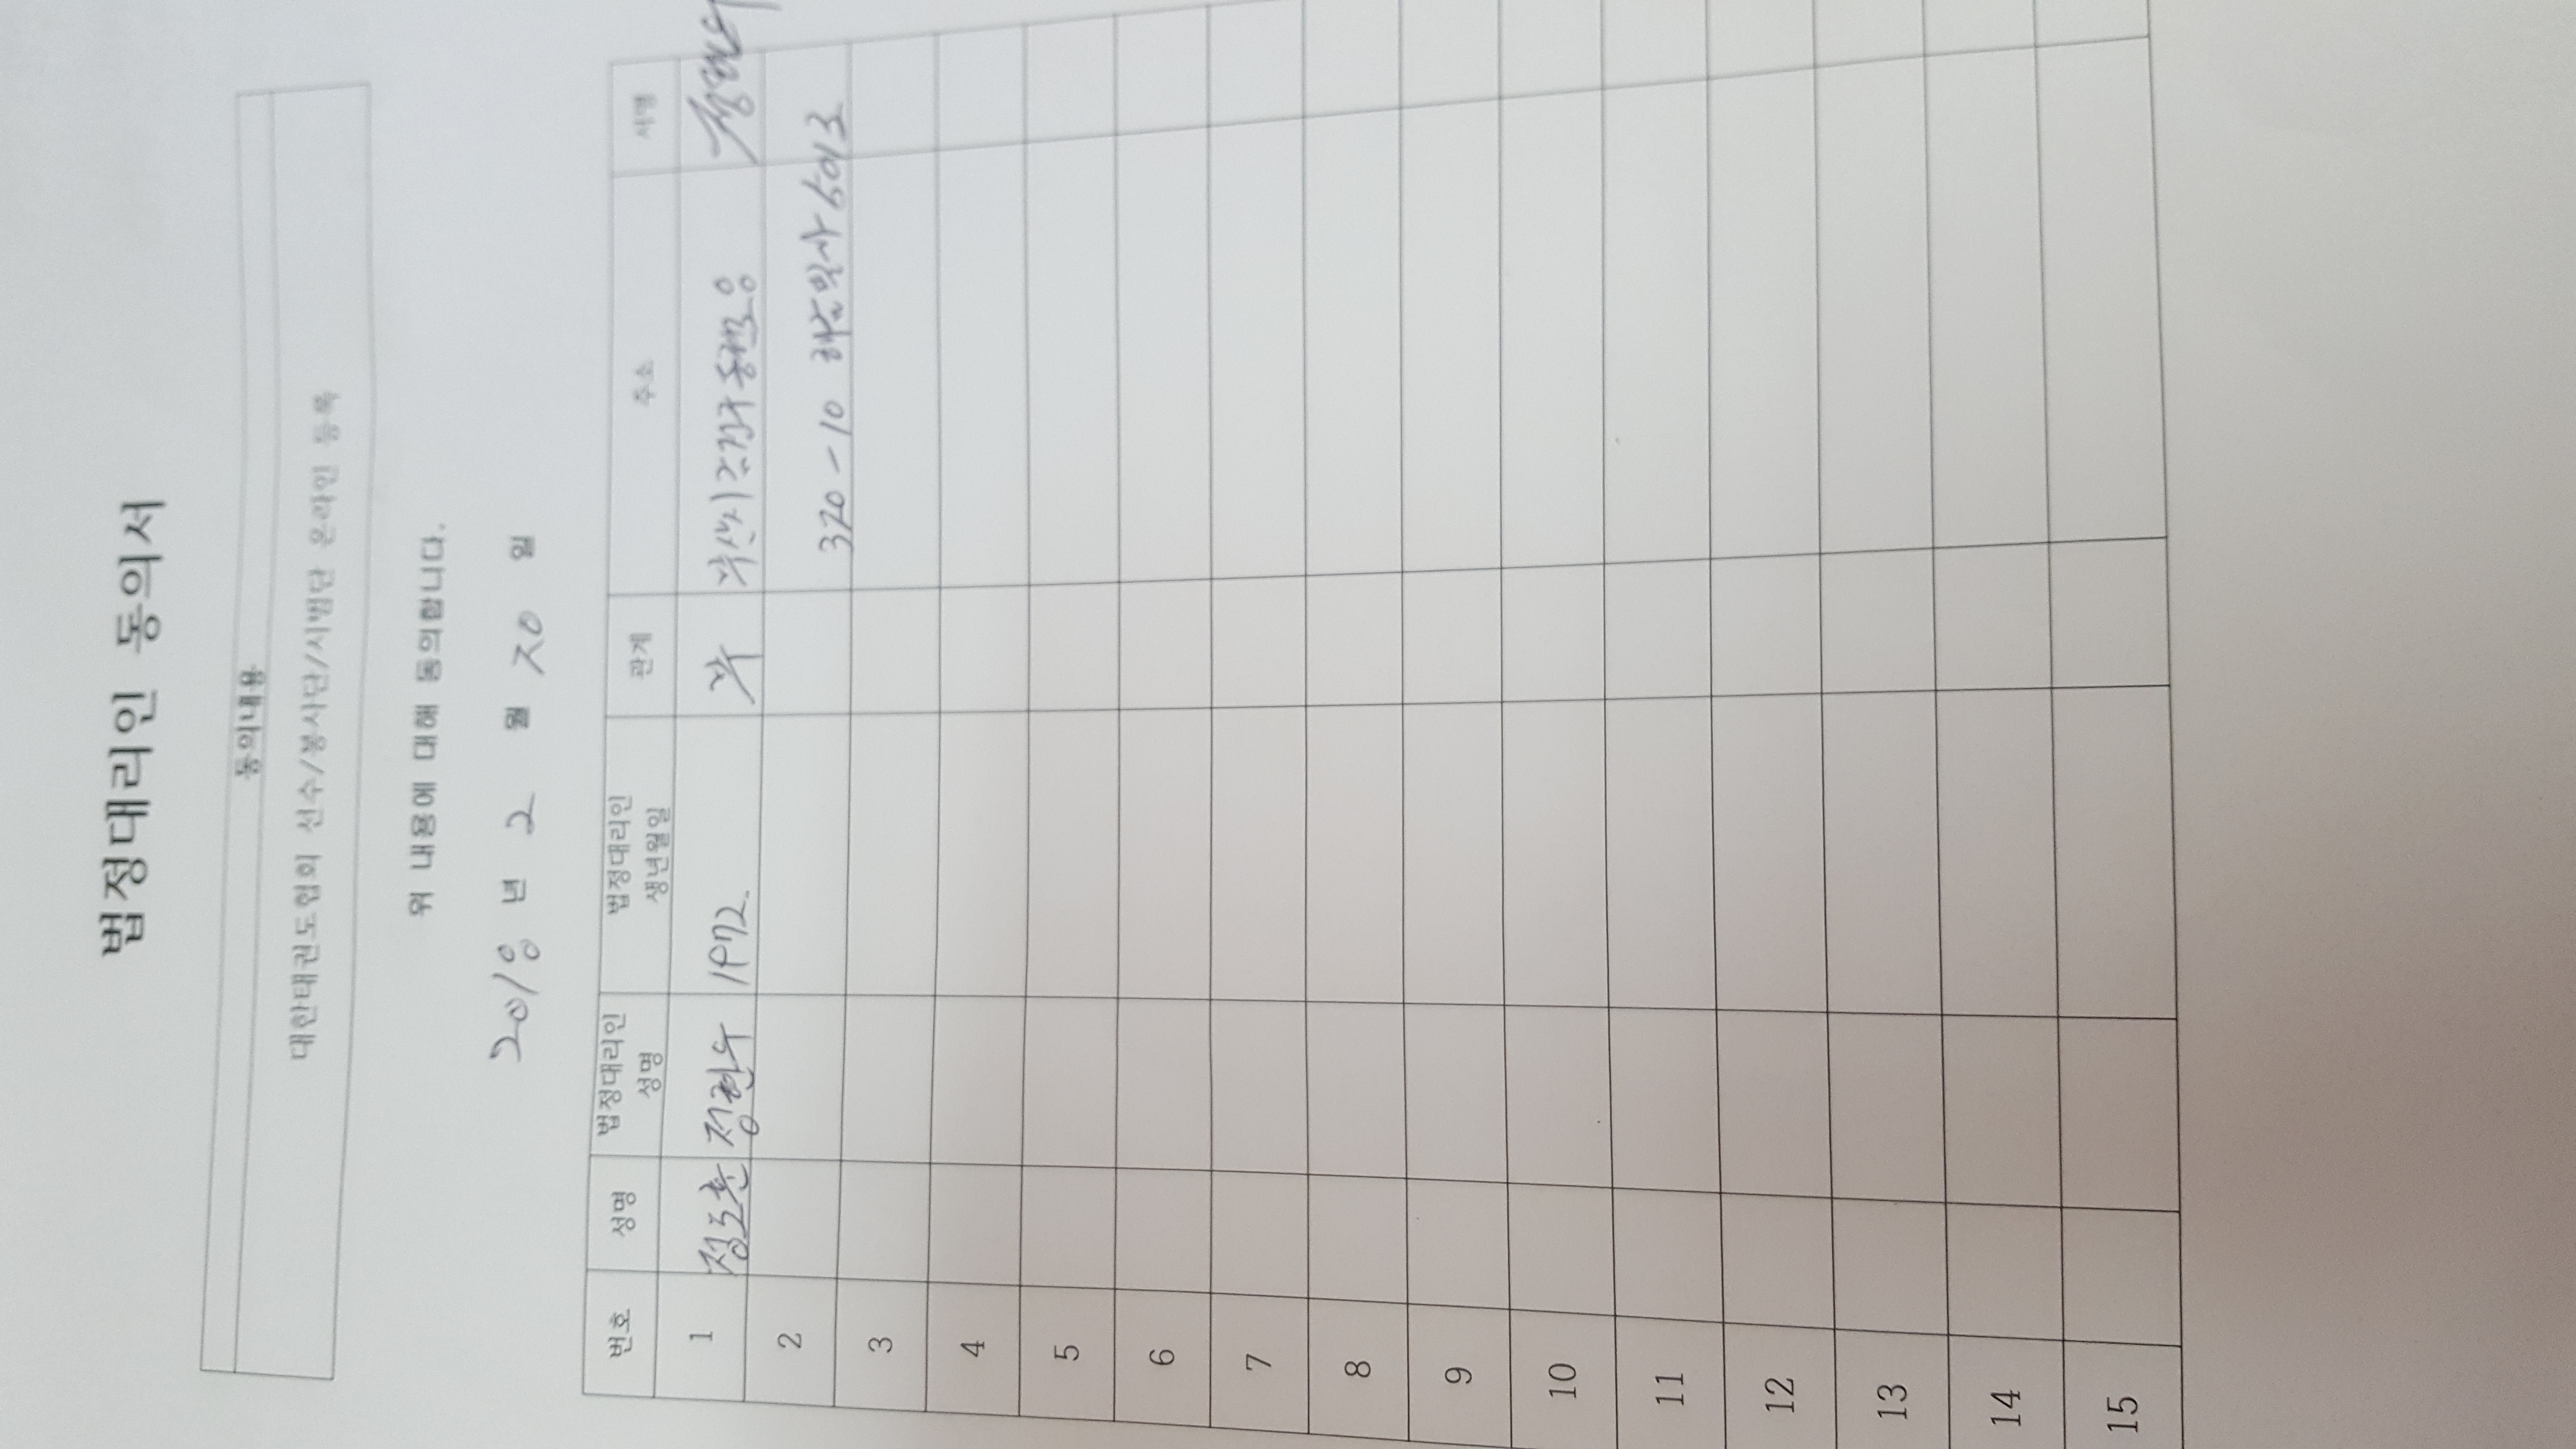 법정대리인 동의서
동의내용
대한태권도협회 선수/봉사단/시범단 온라인 등록
위 내용에 대해 동의합니다.
2018 년 2 월 20 일
번호 성명 법정대리인 성명 법정대리인 생년월일 관계 주소 서명
1 정현우 1972. 부
320-10
2
3
4
5
6
7
8
9
10
11
12
13
14
15